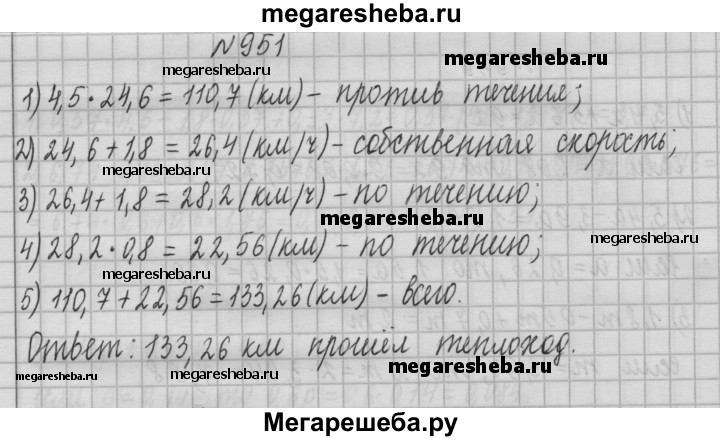 megaresheba.ru
N951
megaresheba.ru
megaresheba.ru
1) 4,5·24,6 = 110,7 (км) - против течения;
2) 24,6 + 1,8 = 26,4 (км/ч) - собственная скорость;
megaresheba.ru
megaresheba.ru
3) 26,4 + 1,8 = 28,2 (км/ч) - по течению;
megaresheba.ru
4) 28,2·0,8 = 22,56 (км) - по течению;
megaresheba.ru
megaresheba.ru
5) 110,7 + 22,56 = 133,26 (км) - всего.
megaresheba.ru
Ответ: 133,26 км прошёл теплоход.
megaresheba.ru
megaresheba.ru
megaresheba.ru
Мегарешеба.ру